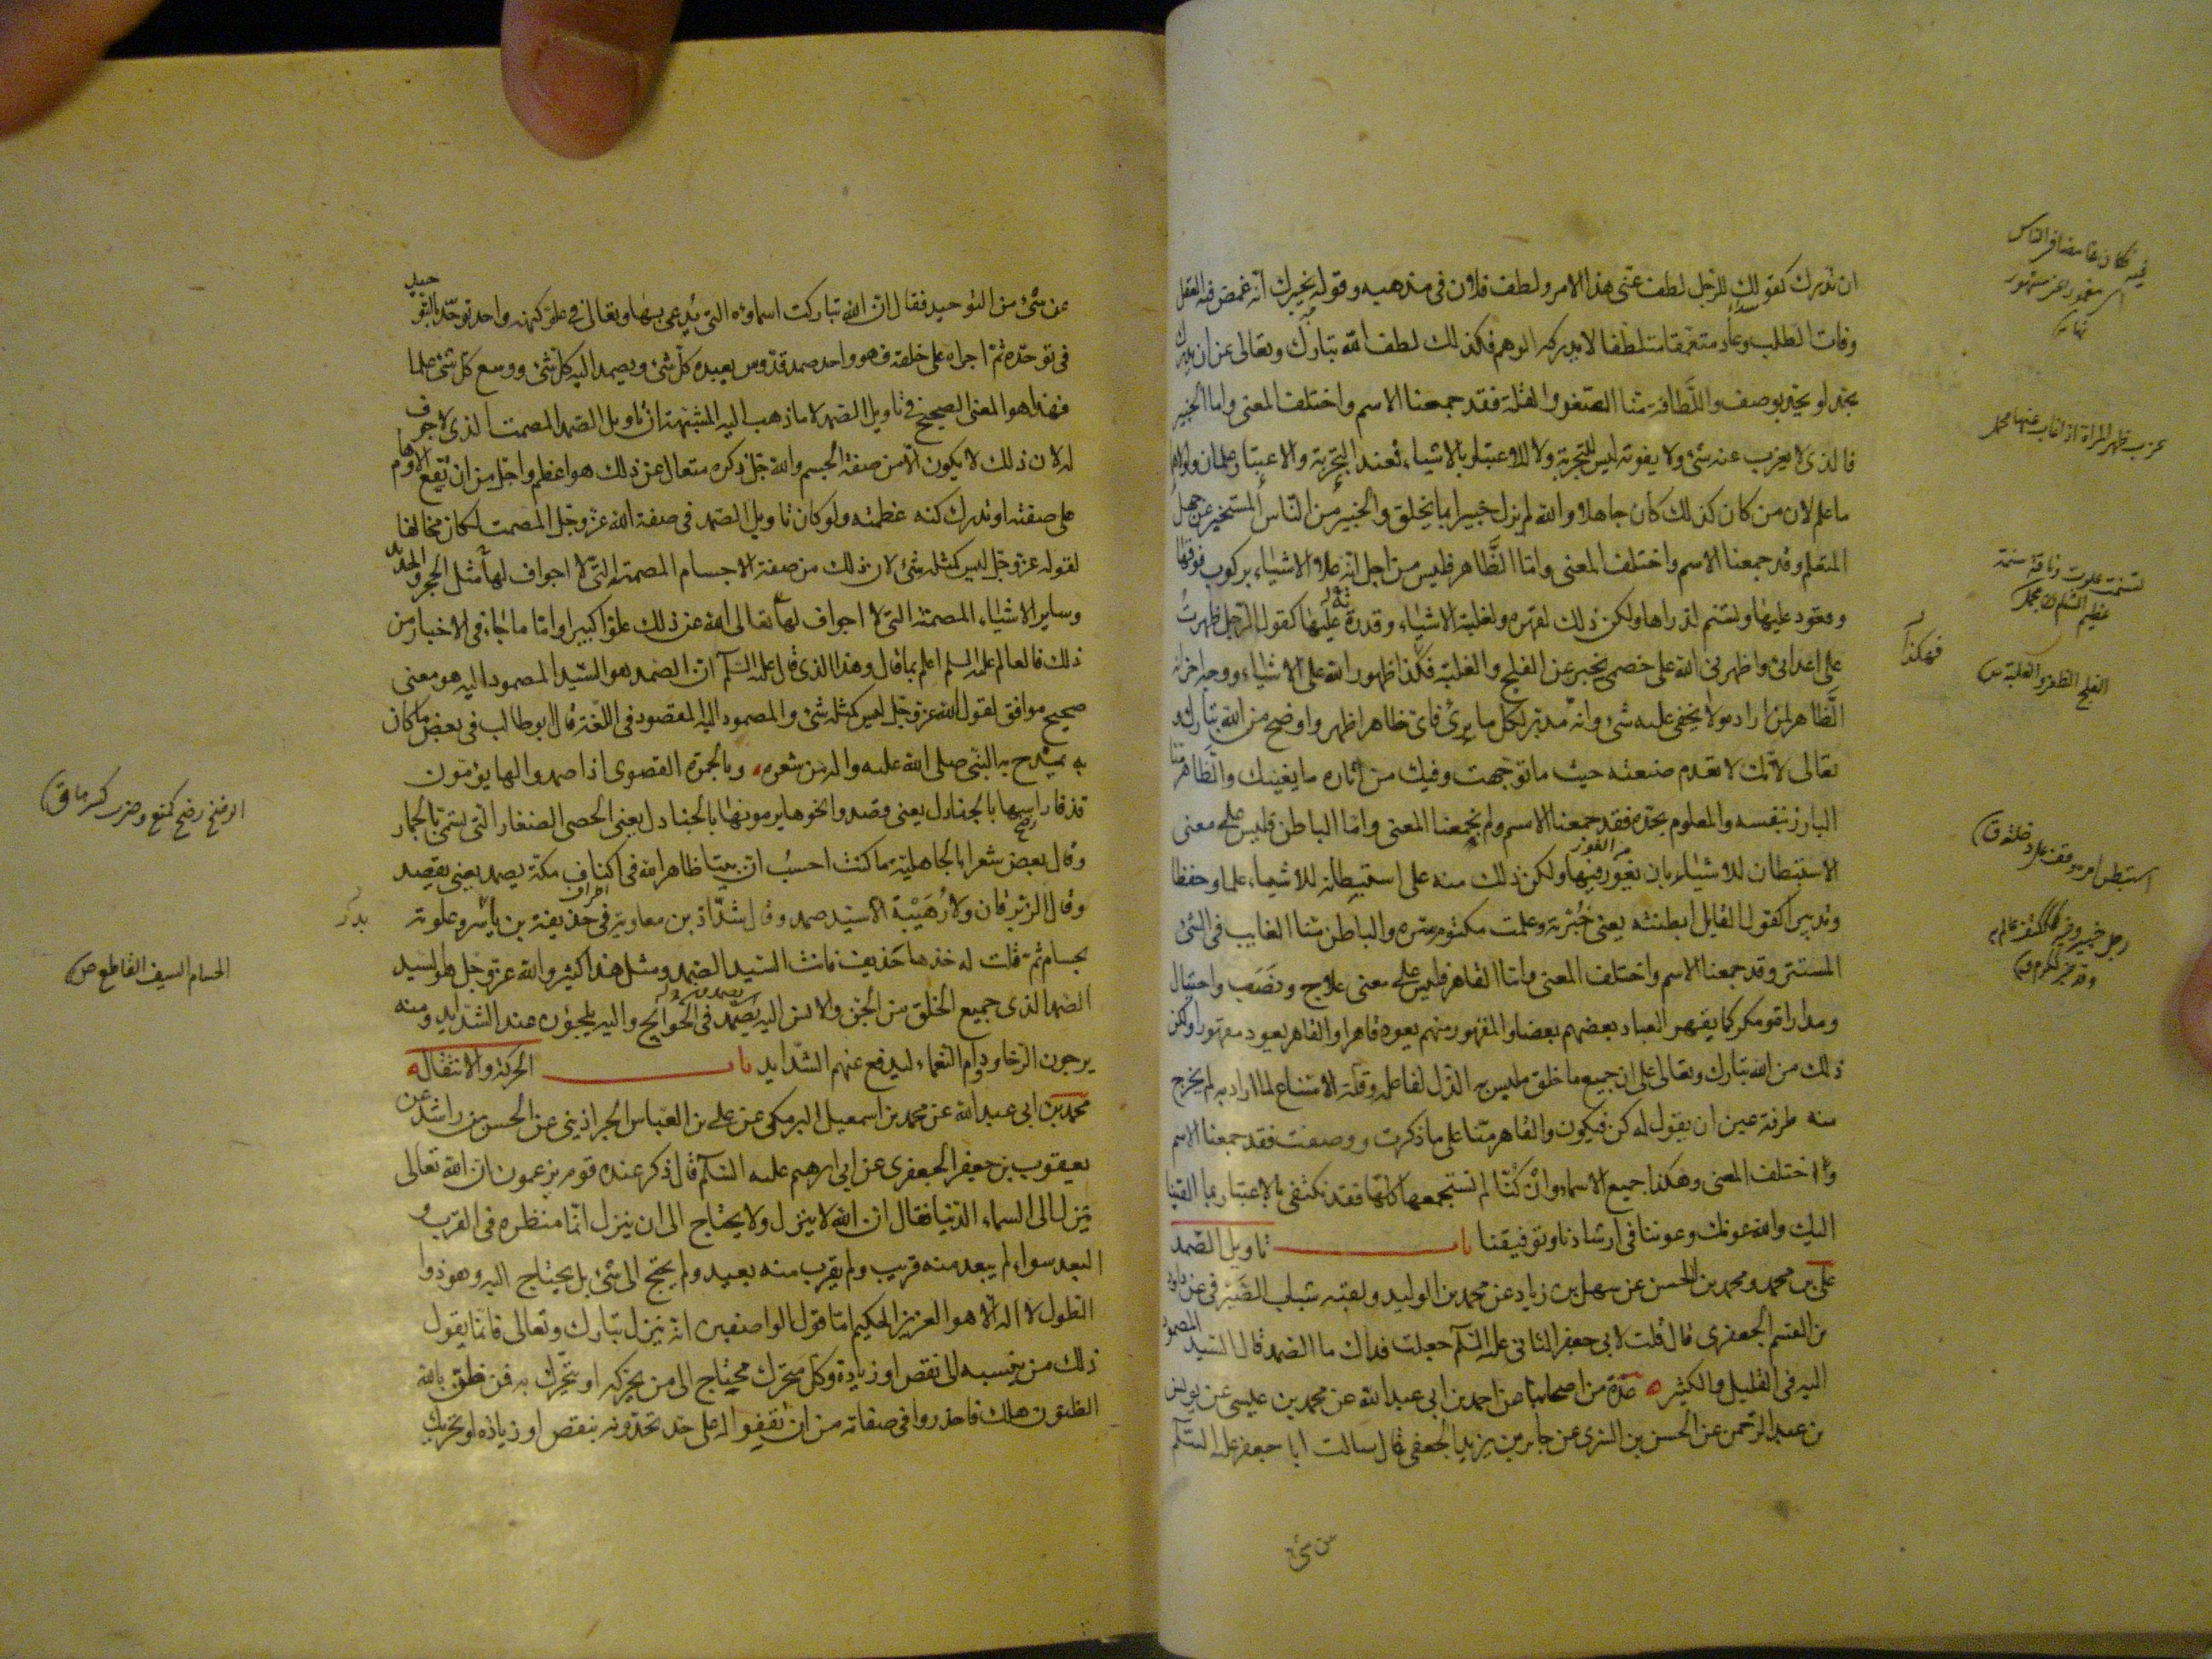 ان تدرك كقولك للرجل لطف عنى هذا الامر ولطف فلان فى مذهبه وقوله يخبرك انه غمض فيه العقل
وفات الطلب وعاد متعمقا متلطفا لا يدركه الوهم فكذلك لطف الله تبارك وتعالى عن ان يدرك
بحد او يحد بوصف واللطافة منا الصغر والقلة فقد جمعنا الاسم واختلف المعنى واما الخبير
فالذى لا يعزب عنه شئ ولا يفوته ليس للتجربة ولا للاعتبار بالاشياء فعند التجربة والاعتبار علمان ولولاهما
ما علم لان من كان كذلك كان جاهلا والله لم يزل خبيرا بما يخلق والخبير من الناس المستخبر عن جهل
المتعلم وقد جمعنا الاسم واختلف المعنى واما الظاهر فليس من اجل انه علا الاشياء بركوب فوقها
وقعود عليها وتسنم لذراها ولكن ذلك لقهره ولغلبته الاشياء وقدرته عليها كقول الرجل ظهرت
على اعدائى واظهرنى الله على خصمى يخبر عن الفلج والغلبة فكذا ظهور الله على الاشياء ووجه اخر انه
الظاهر لمن اراده ولا يخفى عليه شئ وانه مدبر لكل ما برئ فاى ظاهر اظهر واوضح من الله تبارك و
تعالى لانك لا تعدم صنعته حيث ما توجهت وفيك من اثاره ما يغنيك والظاهر منا
البارز بنفسه والمعلوم بحده فقد جمعنا الاسم ولم يجمعنا المعنى واما الباطن فليس على معنى
الاستبطان للاشياء بان يغور فيها ولكن ذلك منه على استبطانه للاشياء علما وحفظا
وتدبيرا كقول القايل ابطنته يعنى خبرته وعلمت مكتوم سره والباطن منا الغايب فى الشئ
المستتر وقد جمعنا الاسم واختلف المعنى واما القاهر فليس على معنى علاج ونصب واحتيال
ومداراة ومكر كما يقهر العباد بعضهم بعضا والمقهور منهم يعود قاهرا والقاهر يعود مقهورا ولكن
ذلك من الله تبارك وتعالى على ان جميع ما خلق ملبس به الذل لفاعله وقلة الامتناع لما اراد به لم يخرج
منه طرفة عين ان يقول له كن فيكون والقاهر منا على ما ذكرت ووصفت فقد جمعنا الاسم
واختلف المعنى وهكذا جميع الاسماء وان كنا لم نستجمعها كلها فقد نكتفى بالاعتبار بما القينا
اليك والله عونك وعوننا فى ارشادنا وتوفيقنا باب تاويل الصمد
على بن محمد ومحمد بن الحسن عن سهل بن زياد عن محمد بن الوليد ولقبه شباب الصيرفى عن داود
بن القسم الجعفرى قال قلت لابى جعفر الثانى عليه السلام جعلت فداك ما الصمد قال السيد المصمود
اليه فى القليل والكثير عدة من اصحابنا عن احمد بن ابى عبد الله عن محمد بن عيسى عن يونس
بن عبد الرحمن عن الحسن بن السرى عن جابر بن يزيد الجعفى قال سالت ابا جعفر عليه السلم
عن شئ
فهكذا
الفلج الظفر والغلبة ص
عن شئ من التوحيد فقال ان الله تباركت اسماؤه التى يدعى بها وتعالى فى علو كنهه واحد توحد بالتوحيد
فى توحده ثم اجراه على خلقه فهو واحد صمد قدوس يعبده كل شئ ويصمد اليه كل شئ ووسع كل شئ علما
فهذا هو المعنى الصحيح فى تاويل الصمد لا ما ذهب اليه المشبهة ان تاويل الصمد المصمت الذى لا جوف
له لان ذلك لا يكون الا من صفة الجسم والله جل ذكره متعال عن ذلك هو اعظم واجل من ان تقع الاوهام
على صفته او تدرك كنه عظمته ولو كان تاويل الصمد فى صفة الله عز وجل المصمت لكان مخالفا
لقوله عز وجل ليس كمثله شئ لان ذلك من صفة الاجسام المصمتة التى لا اجواف لها مثل الحجر والحديد
وساير الاشياء المصمتة التى لا اجواف لها تعالى الله عن ذلك علوا كبيرا واما ما جاء فى الاخبار من
ذلك فالعالم عليه السلم اعلم بما قال وهذا الذى قال عليه السلم ان الصمد هو السيد المصمود اليه هو معنى
صحيح موافق لقول الله عز وجل ليس كمثله شئ والمصمود اليه المقصود فى اللغة قال ابو طالب فى بعض ما كان
به يمدح به النبى صلى الله عليه واله من شعره وبالجمرة القصوى اذا صمدوا لها يؤمون
قذفا راسها بالجنادل يعنى قصدوا نحوها يرمونها بالجنادل يعنى الحصى الصغار التى تسمى بالجمار
وقال بعض شعراء الجاهلية ما كنت احسب ان بيتا ظاهرا لله فى اكناف مكة يصمد يعنى يقصد
وقال الزبرقان ولا رهيبة الا سيد صمد وقال شداد بن معاوية فى حذيفة بن بدر علوته
بحسام ثم قلت له خذها حذيف فانت السيد الصمد ومثل هذا كثير والله عز وجل هو السيد
الصمد الذى جميع الخلق من الجن والانس اليه يصمد فى الحوائج واليه يلجؤن عند الشدايد ومنه
يرجون الرخا ودوام النعماء ليدفع عنهم الشدايد باب الحركة والانتقال
محمد بن ابى عبد الله عن محمد بن اسمعيل البرمكى عن على بن العباس الجراذينى عن الحسن بن راشد عن
يعقوب بن جعفر الجعفرى عن ابى ابرهيم عليه السلم قال ذكر عنده قوم يزعمون ان الله تعالى
ينزل الى السماء الدنيا فقال ان الله لا ينزل ولا يحتاج الى ان ينزل انما منظره فى القرب و
البعد سواء لم يبعد منه قريب ولم يقرب منه بعيد ولم يحتج الى شئ بل يحتاج اليه وهو ذوا
الطول لا اله الا هو العزيز الحكيم اما قول الواصفين انه ينزل تبارك وتعالى فانما يقول
ذلك من ينسبه الى نقص او زيادة وكل متحرك محتاج الى من يحركه او يتحرك به فمن ظن بالله
الظنون هلك فاحذروا فى صفاته من ان تقفوا له على حد تحدونه بنقص او زيادة او تحريك
الحسام السيف القاطع ص